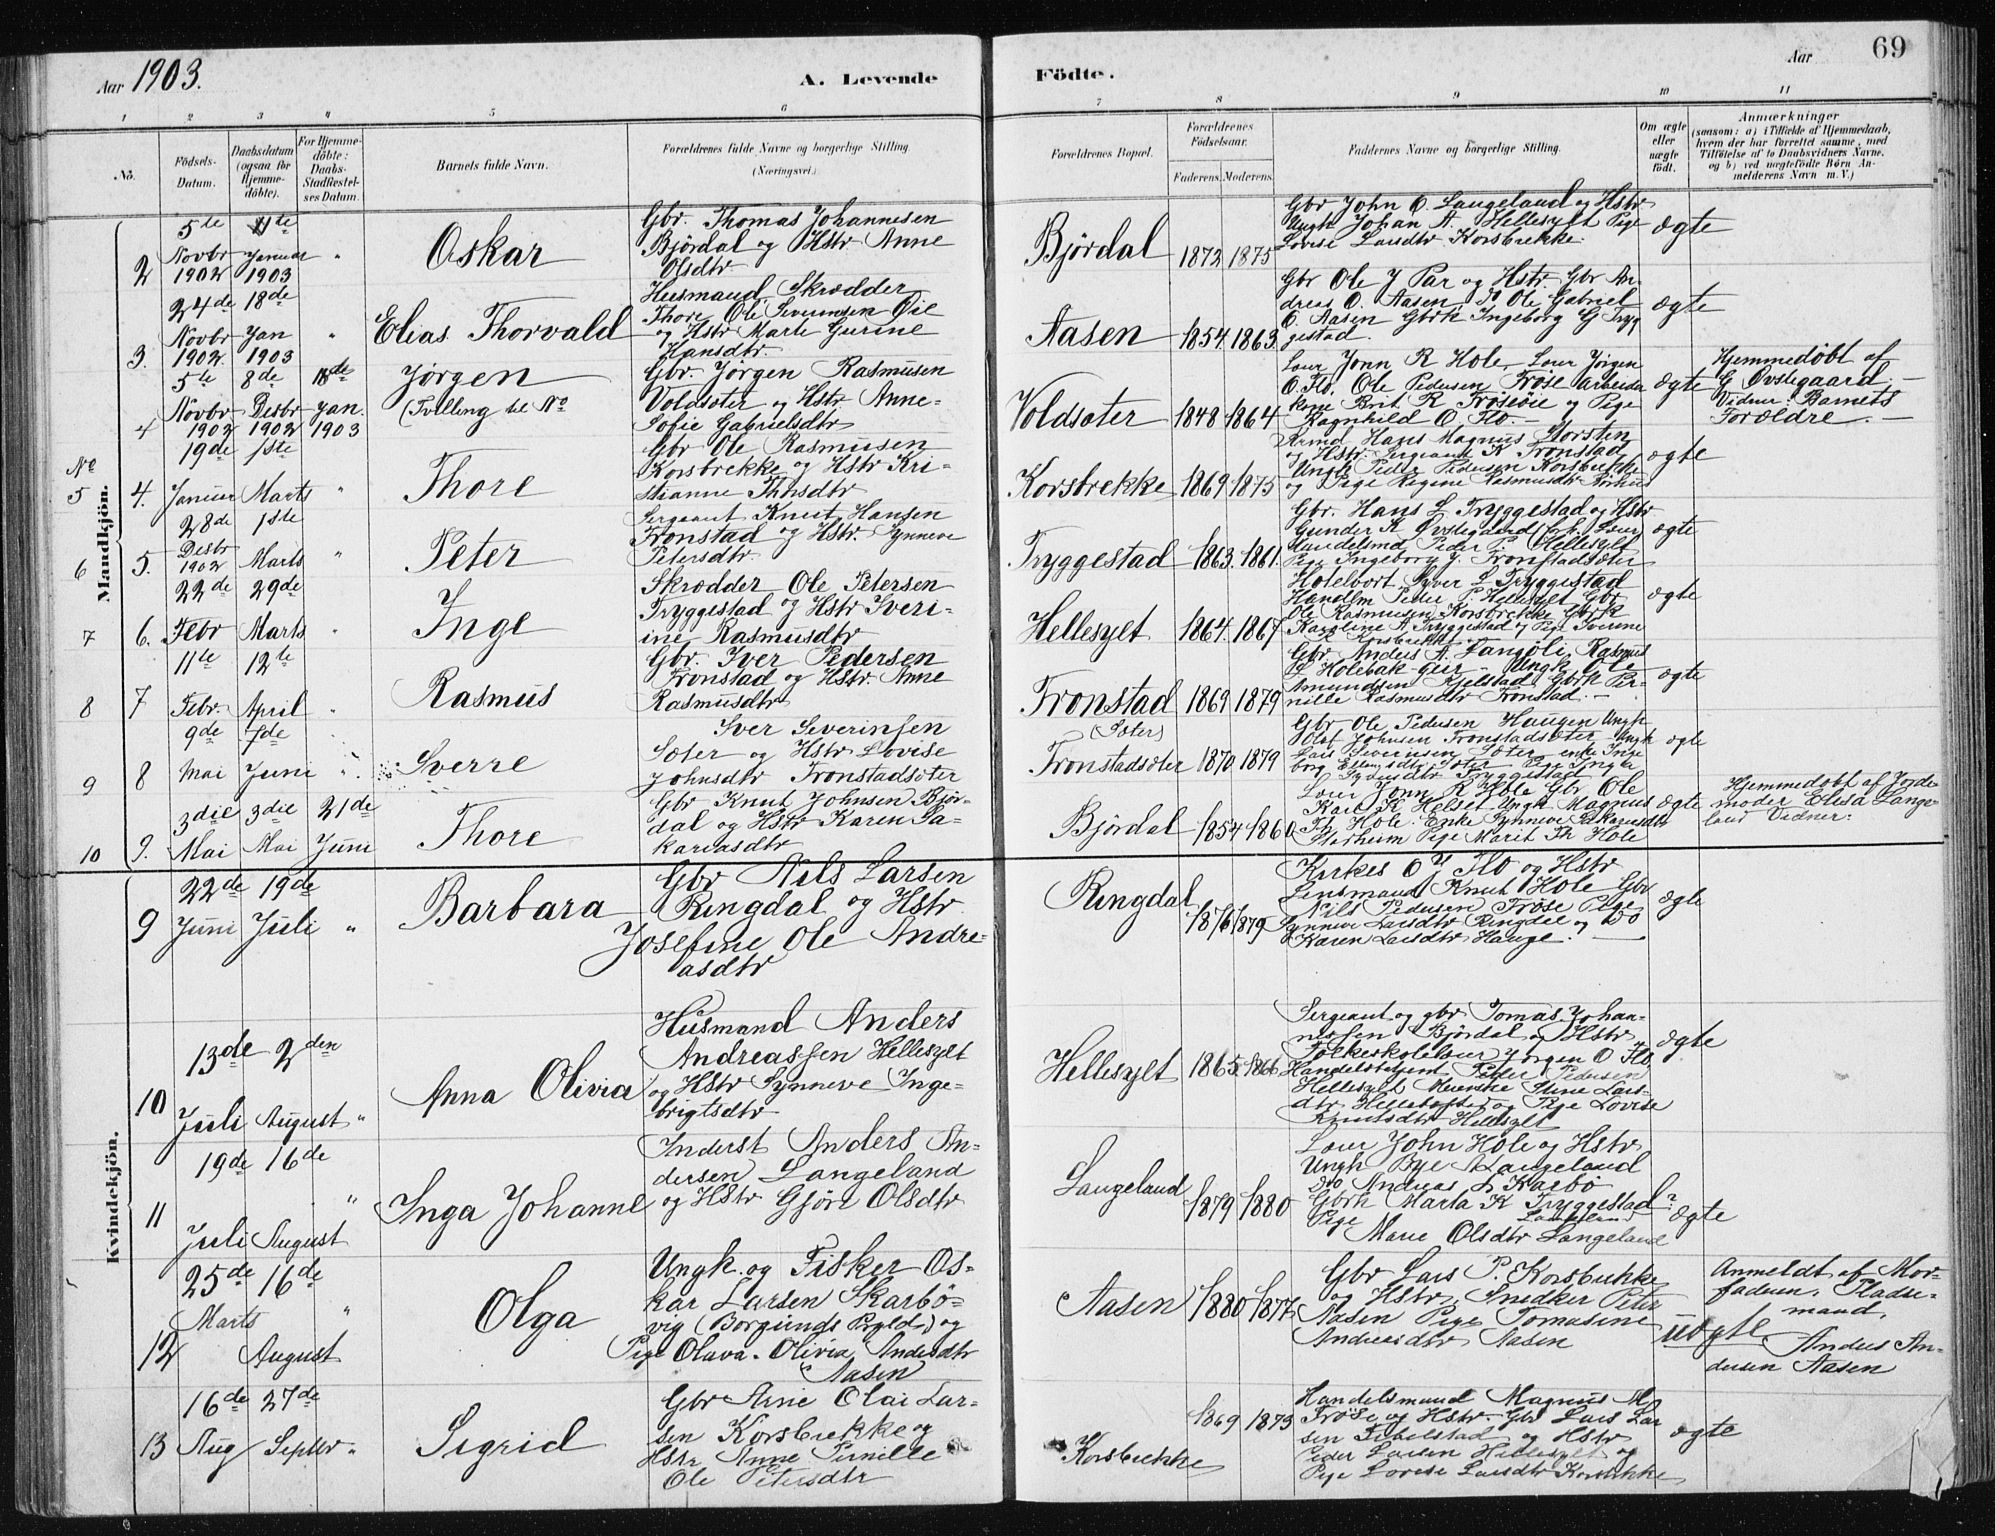 Aar 1903.
A. Levende
Födte.
Aar
69
1 2 3 4 5 6 7 8 9 10 11
No.
Födsels-
Datum.
Daabsdatum
(ogsaa for
Hjemme-
döbte).
For Hjemme-
döbte:
Daabs-
Stadfæstel-
ses Datum.
Barnets fulde Navn.
Forældrenes fulde Navne og borgerlige Stilling.
(Næringsvei.)
Forældrenes Bopæl.
Forældrenes
Födselsaar.
Faderens. Moderens.
Faddernes Navne og borgerlige Stilling.
Om ægte
eller
uægte
födt.
Anmærkninger
(saasom: a) i Tilfælde af Hjemmedaab,
hvem der har forrettet samme, med
Tilföielse af to Daabsvidners Navne.
og b) ved uægtefödte Börn An-
melderens Navn m. V.)
Mandkjön.
2
5te
Novbr
1902
11te
Januar
1903
"
Oskar
Gbr. Thomas Johannesen
Bjørdal og Hstr Anne
Olsdtr
Bjørdal
1872 1875
Gbr John O. Langeland og Hstr
Ungk Johan A. Hellesylt Pige
Lovise Larsdtr Korsbrekke.
ægte
3.
24de
Novbr
1902.
18de
Jan
1903
"
Elias Thorvald
Husmand, Skrædder
Thore Ole Severinsen Øie
og Hstr Marte Gurine
Hansdtr.
Aasen
1854. 1863.
Gbr Ole J Par og Hstr. Gbr An-
dreas O. Aasen, Do Ole Gabriel
O. Aasen Gbrk Ingeborg G Tryg
gestad.
ægte
4
5te
Novbr
1902
8de
Desbr
1902
18de
Jan.
1903
Jørgen
(Tvilling til No
Gbr. Jørgen Rasmusen
Voldsæter og Hstr. Anne-
Sofie Gabrielsdtr
Voldsæter
1848 1864
Lærer Jonn R Hole, Lærer Jørgen
O. Flo, Ole Pedersen Frøse Arbeider
kone Brit R Frøsøie og Pige
Ragnhild O Flo. -
ægte
Hjemmedøbt af
G Øvstegaard -
Vidner: Barnets
Forældre. -
No
5 4.
19de
Januar
1ste
Marts
"
Thore
Gbr Ole Rasmusen
Korsbrekke og Hstr Kri-
stianne Thorsdtr
Korsbrekke
1869 1875
Hans Magnus Torsten
og Hstr. Sergeant K Tronstad
Ungk Peder Pedersen Korsbrekke
og Pige Regine Rasmusdtr
ægte
6 5.
28de
Desbr
1902
1ste
Marts
"
Peter
Sergeant Knut Hansen
Tronstad og Hstr. Synneve
Petersdtr
Tryggestad
1863. 1861.
Gbr. Hans L Tryggestad og Hstr
Gunder K Øvstegaard
Handelsmd Peder P. Hellesylt
Pige Ingeborg J. Tronstadsæter
ægte
7 6.
22de
Febr
29de
Marts
"
Inge
Skrædder Ole Petersen
Tryggestad og Hstr Sveri-
ine Rasmusdtr
Hellesylt
1864. 1867
Hotelvert Syver L Tryggestad
Handlm Peder P. Hellesylt Gbr
Ole Rasmusen Korsbrekke Gbrk
Karoline A. Tryggestad og Pige Sverine
R Korsbrekke
ægte
8 7
11te
Febr
12te
April
"
Rasmus
Gbr. Iver Pedersen
Tronstad og Hstr. Anne
Rasmusdtr
Tronstad
1869 1879
Gbr Anders A. Langöli, Rasmus
L Holebak Ungk Ole
Amundsen Kjelstad Gbrk Per-
nille Rasmusdtr Tronstad. -
ægte
9 8
9de
Mai
7de
Juni
"
Sverre
Iver Severinsen
Sæter og Hstr Lovise
Johnsdtr Tronstadsæter
(Sæter)
Tronstadsæter
1870. 1879
Gbr Ole Pedersen Haugen Ungk
Olaf Johnsen Tronstadsæter Ungk
Lars Severinsen Sæter enke Inge
borg Sæter Pige Inger
Syversdtr Tryggestad
ægte
10 9.
3die
Mai
3die
Mai
21de
Juni
Thore
Gbr Knut Johnsen Bjør-
dal og Hstr Karen Sa-
kariasdtr
Bjørdal
1854 1860
Lærer Jonn R Hole Gbr Ole
Karl K Helset Ungk Magnus
Th Hole. Enke Synneve Sakariasdtr
Storheim Pige Marit Th Hole
ægte
Hjemmedøbt af Jorde-
moder Elisa Lange-
land Vidner:
Kvindekjön.
9
22de
Juni
19de
Juli
"
Barbara
Gbr Nils Larsen
Ringdal og Hstr
Josefine Ole Andre-
asdtr
Ringdal
1876 1879
Kirkes O J Flo og Hstr
Lensmand Knut Hole Gbr
Nils Pedersen Frøse Pige
Synneve Larsdtr Ringdal og Do
Karen Larsdtr Hauge. -
ægte
10
13de
Juli
2den
August
"
Anna Olivia
Husmand Anders
Andreassen Hellesylt
og Hstr Synneve Inge-
brigtsdtr
Hellesylt
1865. 1866
Sergeant og gbr Tomas Johan-
nessen Bjørdal og Hstr
Folkeskolelærer Jørgen O Flo
Handelsbetjent Peter Pedersen
Hellesylt Meierske Stine Lars-
dtr Helletofte og Pige Lovise
Knutsdtr Hellesylt
ægte
11
19de
Juli
16de
August
"
Inga Johanne
Inderst Anders An-
dersen Langeland
og Hstr Gjöre Olsdtr
Langeland
1879 1880
Lærer John Hole og Hstr
Ungk Bye A Langeland
Do Andreas L Karbø
Gbrk Marta K Tryggestad
Pige
Marie Olsdtr Langeland
ægte
12
25de
Marts
16de
August
"
Olga
Ungk. og Fisker Os-
kar Larsen Skarbö-
vig (Borgunds Prgld.) og
Pige Olava. Olivia Andersdtr
Aasen
Aasen
1880 1877
Gbr Lars P. Korsbrekke
og Hstr, Snedker Peter
Aasen Pige Tomasine
Andreasdtr Aasen
uægte
Anmeldt af Mor-
faderen, Pladse-
mand,
Anders An-
dersen Aasen
13
16de
Aug
27de
Septbr
"
Sigrid
Gbr Arne Olai Lar-
sen Korsbrekke og
Hstr Anne Pernille
Ole Petersdtr
Korsbrekke
1869 1873
Handelsmand Magnus M
Frøse og Hstr. Gbr Lars Lar
sen Fibelstad og Hstr
Peder Larsen Hellesylt og
Pige Lovise Larsdtr Korsbrekke
ægte